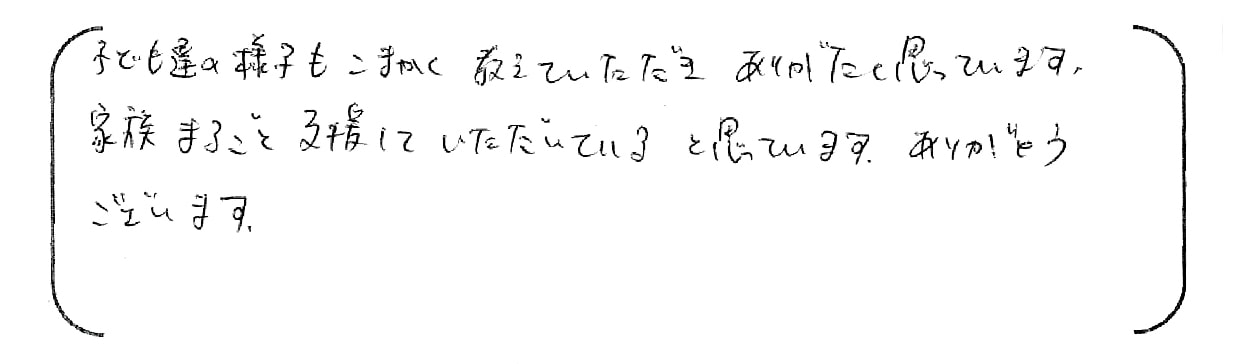 子ども達の様子もこまかく教えていただき ありがたく思っています。
家族まるごと支援していただいていると思っています。ありがとう
ございます。